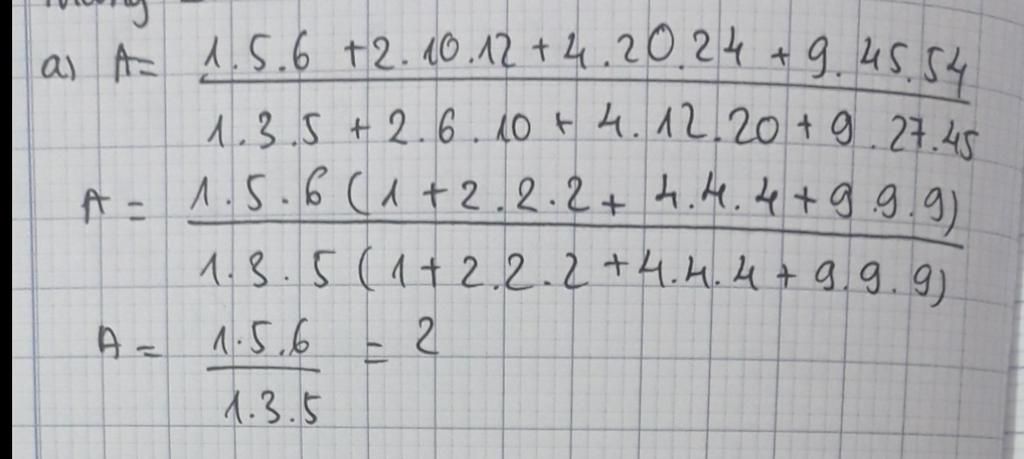 a) A = 1.5.6 + 2.10.12 + 4.20.24 + 9.45.54
1.3.5 + 2.6.10 + 4.12.20 + 9.27.45
A = 1.5.6 (1 + 2.2.2 + 4.4.4 + 9.9.9)
1.3.5 (1 + 2.2.2 + 4.4.4 + 9.9.9)
A = 1.5.6 = 2
1.3.5